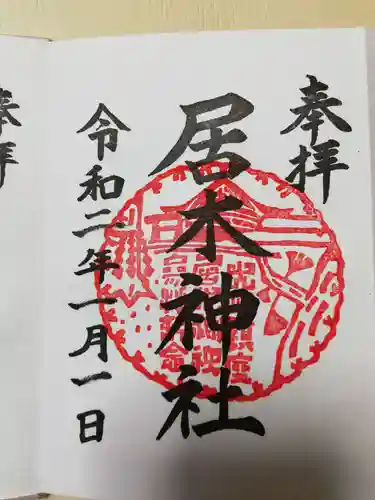 奉拝
居木神社
令和二年一月一日
奉拝